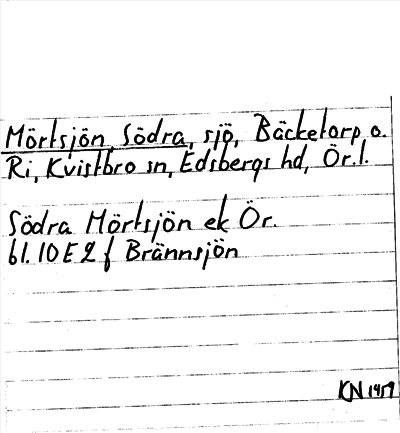 Mörtsjön, Södra, sjö, Bäcketorp o.
Ri, Kvistbro sn, Edsbergs hd, Ör.l.
Södra Mörtsjön ek Ör.
bl. 10 E 2 f Brännsjön
KN